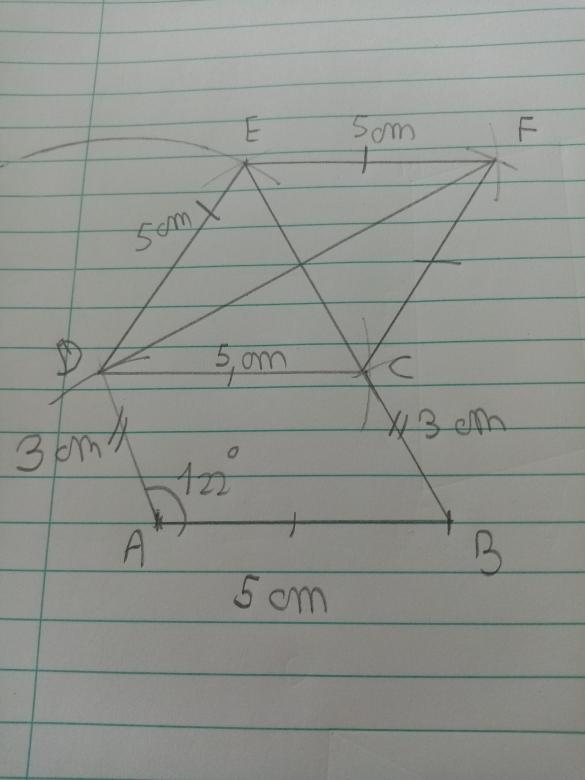 E 5cm F
5cm
D 5cm C
3cm 3 cm
122°
A B
5 cm